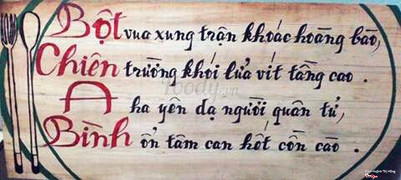 Bột vua xung trận khoác hoàng bào,
Chiên trường khói lửa vít tầng cao.
A ha yên dạ người quân tử,
Bình ổn tâm can hết cồn cào.
foody.vn